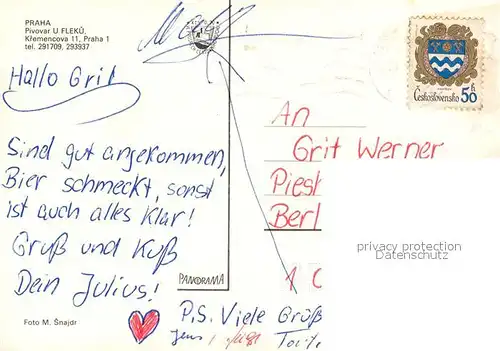 PRAHA
Pivovar U FLEKŮ,
Křemencova 11, Praha 1
tel. 291709, 293937
Hallo Grit
Sind gut angekommen,
Bier schmeckt, sonst
ist auch alles klar!
Gruß und Kuß
Dein Julius!
Foto M. Šnajdr
PANORAMA
Československo 50 h
An
Grit Werner
Piest
Berl
1
privacy protection
Datenschutz
P.S. Viele Grüß
Jens,